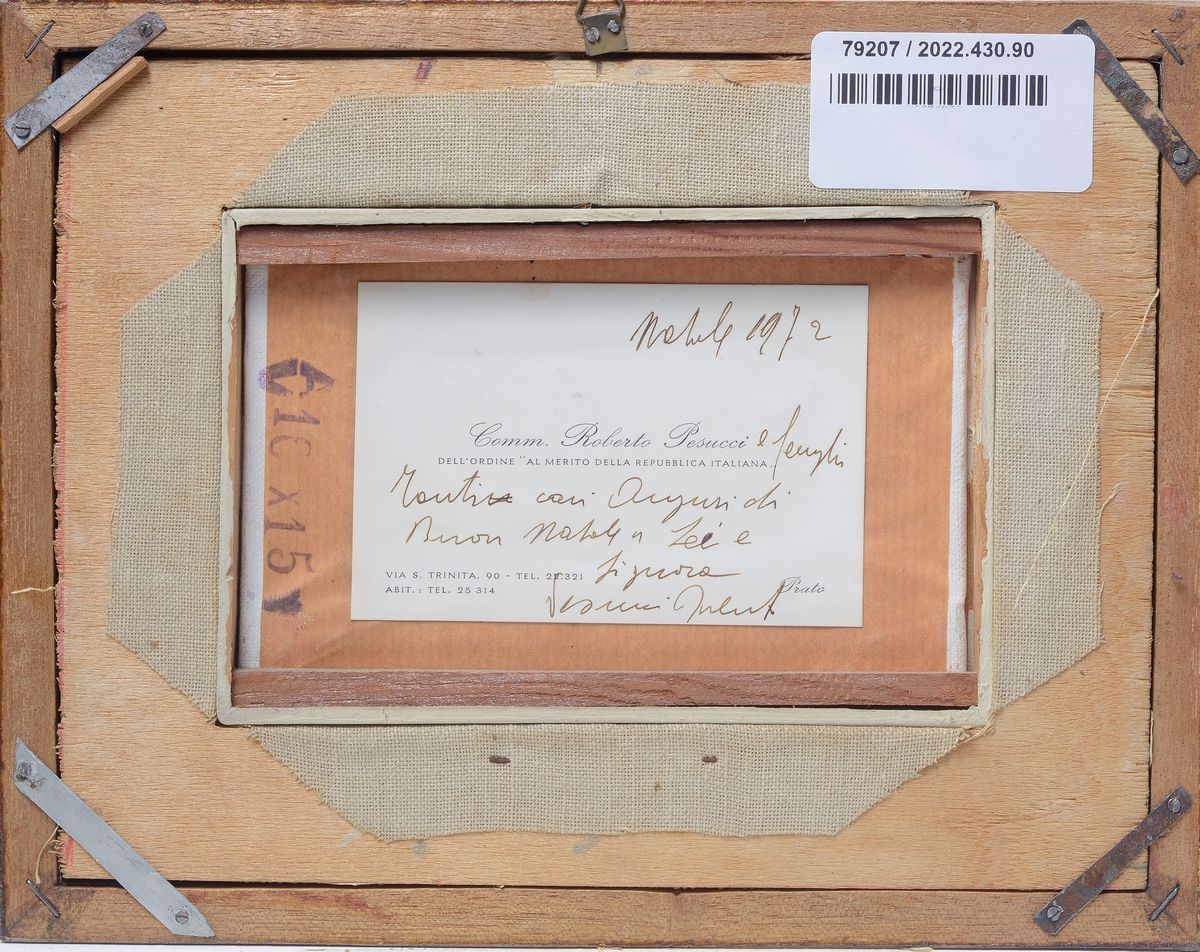 79207 / 2022.430.90
Natale 1972
Comm. Roberto Pesucci e famiglia
DELL'ORDINE "AL MERITO DELLA REPUBBLICA ITALIANA"
Tanti cari Auguri di
Buon Natale a Lei e
Signora
VIA S. TRINITA, 90 - TEL. 22.321
ABIT.: TEL. 25 314
Prato
Pesucci
10 x 15